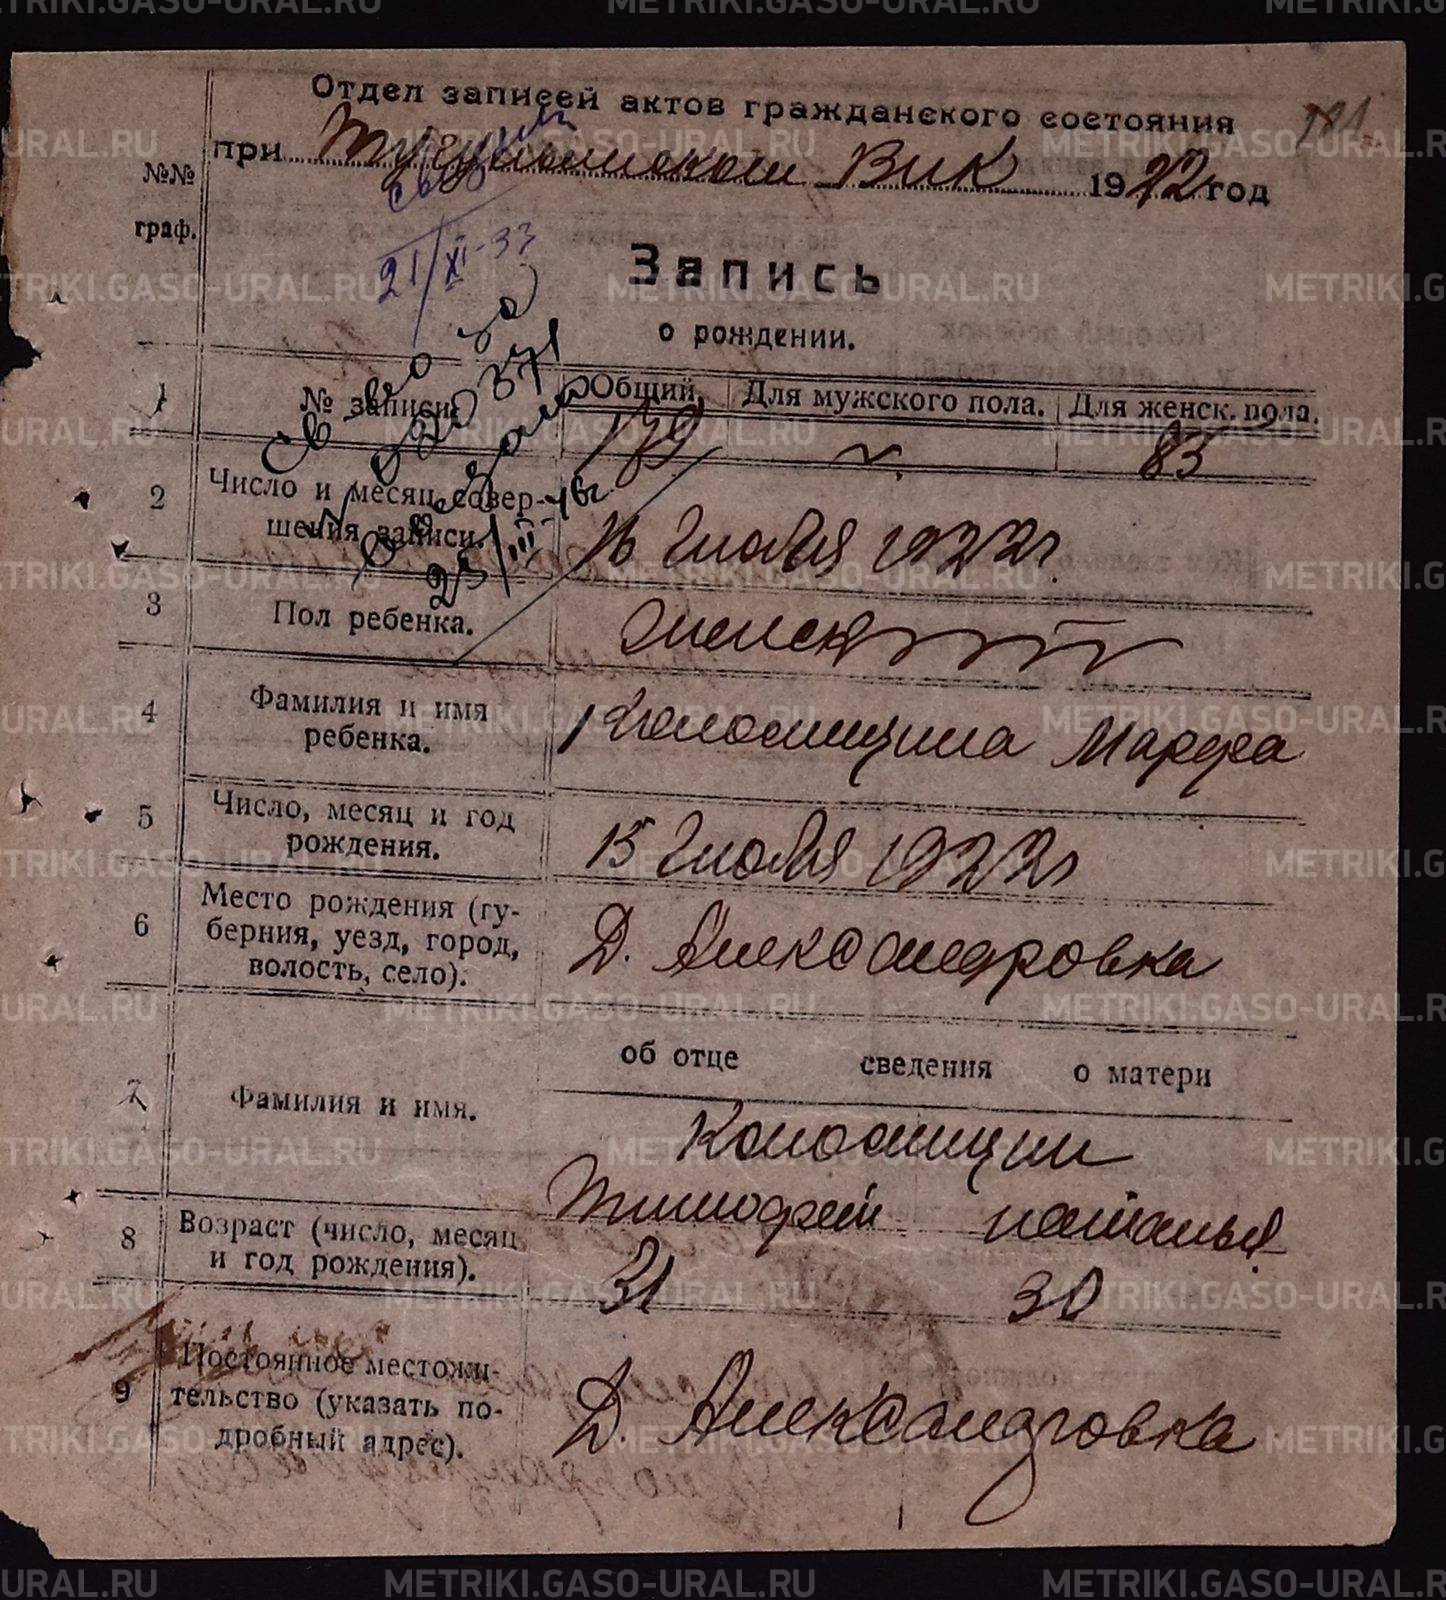 Отдел записей актов гражданского состояния
при Тугулымском Вик 1922 год
181
№№
граф.
21/XI-33
Запись
о рождении.
1 № записи. Общий. Для мужского пола. Для женск. пола.
170 83
Св-во за
25/III-46г.
2 Число и месяц совер-
шения записи. 16 Июля 1922г.
3 Пол ребенка. Женск
4 Фамилия и имя
ребенка. Коломицина Марфа
5 Число, месяц и год
рождения. 15 Июля 1922г
6 Место рождения (гу-
берния, уезд, город,
волость, село). Д. Александровка
об отце сведения о матери
7 Фамилия и имя. Коломицин
Тимофей Наталья
8 Возраст (число, месяц
и год рождения). 31 30
9 Постоянное местожи-
тельство (указать по-
дробный адрес). Д. Александровка
METRIKI.GASO-URAL.RU